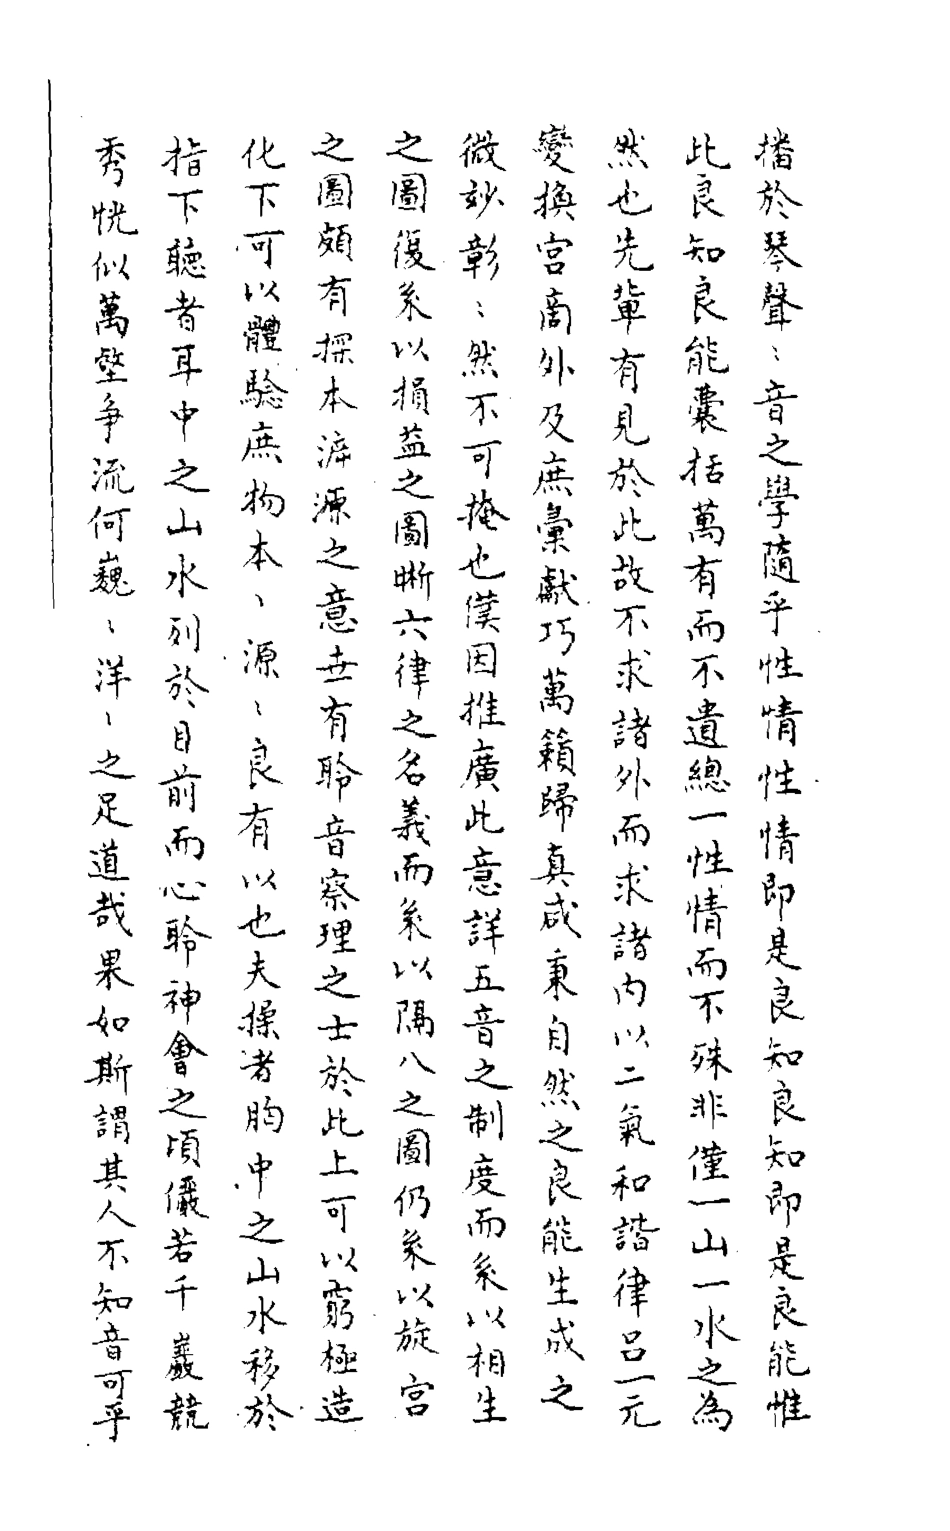 播於琴聲〻音之學隨乎性情性情即是良知良知即是良能惟
此良知良能囊括萬有而不遺總一性情而不殊非僅一山一水之為
然也先輩有見於此故不求諸外而求諸內以二氣和諧律呂一元
變換宮商外及庶彙獻巧萬籟歸真咸秉自然之良能生成之
微妙彰〻然不可掩也僕因推廣此意詳五音之制度而系以相生
之圖復系以損益之圖晰六律之名義而系以隔八之圖仍系以旋宮
之圖頗有探本泝源之意世有聆音察理之士於此上可以窮極造
化下可以體驗庶物本〻源〻良有以也夫操者胸中之山水移於
指下聽者耳中之山水列於目前而心聆神會之頃儼若千巖競
秀恍似萬壑争流何巍〻洋〻之足道哉果如斯謂其人不知音可乎